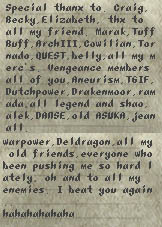 Special thanx to. Craig,
Becky,Elizabeth, thx to
all my friend, Marak,Tuff
Buff,ArchIII,Cowilian,Tor
nado,QUEST,helly,all my m
erc's. Vengeance members
all of you,Aneurism,TGIF,
Dutchpower,Drakenmoor,ram
ada,all legend and shao,
alek,DANSE,old ASUKA,jean
all
warpower,Deldragon,all my
old friends,everyone who
been pushing me so hard l
ately, oh and to all my
enemies. I beat you again
hahahahahaha